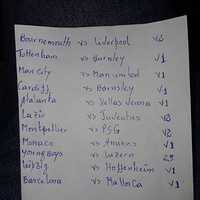 Bournemouth vs Liverpool v2
Tottenham vs Burnley v1
Man city vs Man united v1
Cardiff vs Barnsley v1
Atalanta vs Hellas Verona v1
Lazio vs Juventus v2
Montpellier vs PSG v2
Monaco vs Amiens v1
Young Boys vs Luzern
Leibzig vs Hoffenheim v1
Barcelona vs Mallorca v1